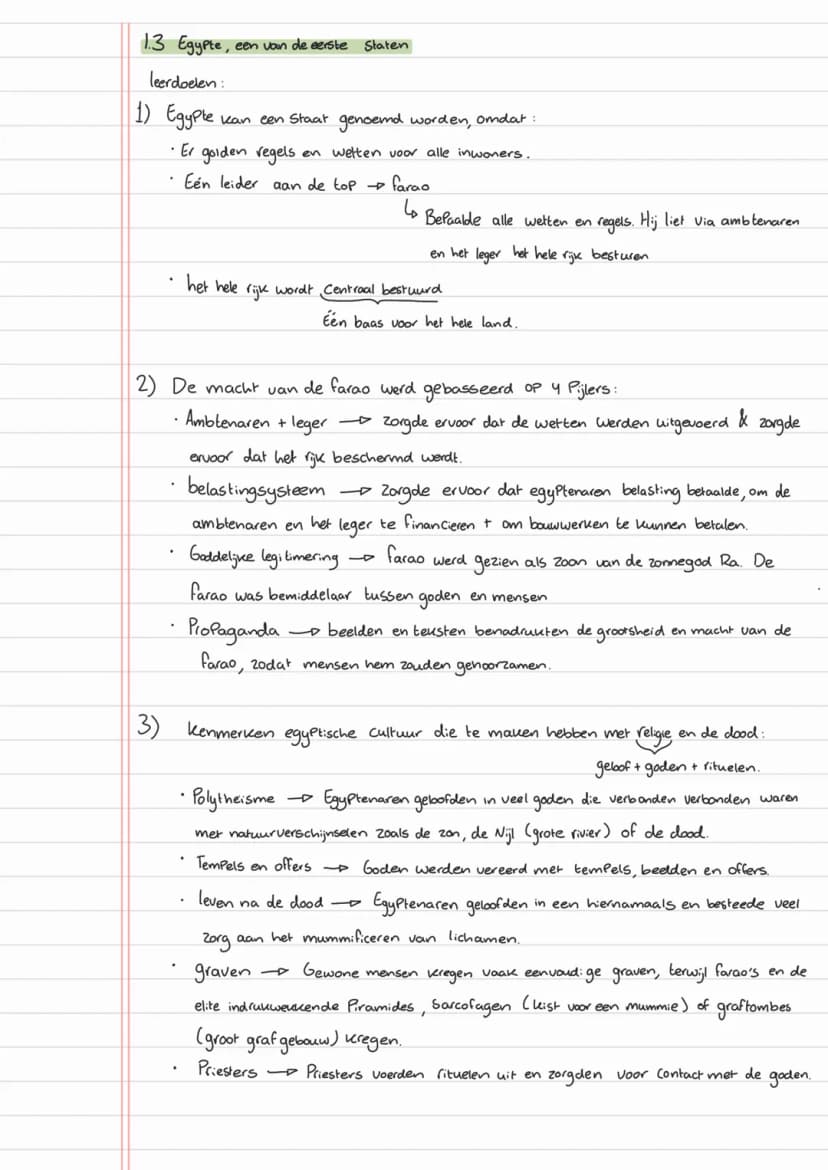 1.3 Egypte, een van de eerste staten
leerdoelen:
1) Egypte kan een staat genoemd worden, omdat:
· Er golden regels en wetten voor alle inwoners.
· Eén leider aan de top → farao
↳ Bepaalde alle wetten en regels. Hij liet via ambtenaren
en het leger het hele rijk besturen
· het hele rijk wordt centraal bestuurd
Één baas voor het hele land.
2) De macht van de farao werd gebasseerd op 4 Pijlers:
· Ambtenaren + leger → zorgde ervoor dat de wetten werden uitgevoerd & zorgde
ervoor dat het rijk beschermd werdt.
· belastingsysteem → zorgde ervoor dat egyptenaren belasting betaalde, om de
ambtenaren en het leger te financieren + om bouwwerken te kunnen betalen.
· Goddelijke legitimering → farao werd gezien als zoon van de zonnegod Ra. De
farao was bemiddelaar tussen goden en mensen
· Propaganda → beelden en teksten benadrukten de grootsheid en macht van de
farao, zodat mensen hem zouden gehoorzamen.
3) kenmerken egyptische cultuur die te maken hebben met religie en de dood:
geloof + goden + rituelen.
· Polytheisme → Egyptenaren geloofden in veel goden die verbonden verbonden waren
met natuurverschijnselen zoals de zon, de Nijl (grote rivier) of de dood.
· Tempels en offers → Goden werden vereerd met tempels, beelden en offers.
· leven na de dood → Egyptenaren geloofden in een hiernamaals en besteede veel
zorg aan het mummificeren van lichamen.
· graven → Gewone mensen kregen vaak eenvoudige graven, terwijl farao's en de
elite indrukwekkende Piramides, sarcofagen (kist voor een mummie) of graftombes
(groot graf gebouw) kregen.
· Priesters → Priesters voerden rituelen uit en zorgden voor contact met de goden.